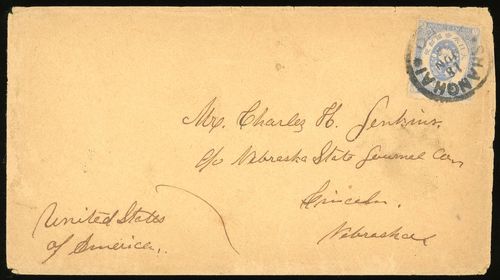 SHANGHAI
Mr. Charles H. Jenkins,
c/o Nebraska State Journal Co.,
Lincoln,
Nebraska
United States
of America.